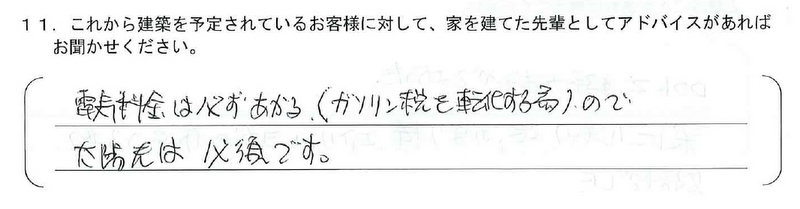 １１．これから建築を予定されているお客様に対して、家を建てた先輩としてアドバイスがあれば
お聞かせください。
電気料金は必ずあがる、（ガソリン税を転化する為）ので
太陽光は必須です。